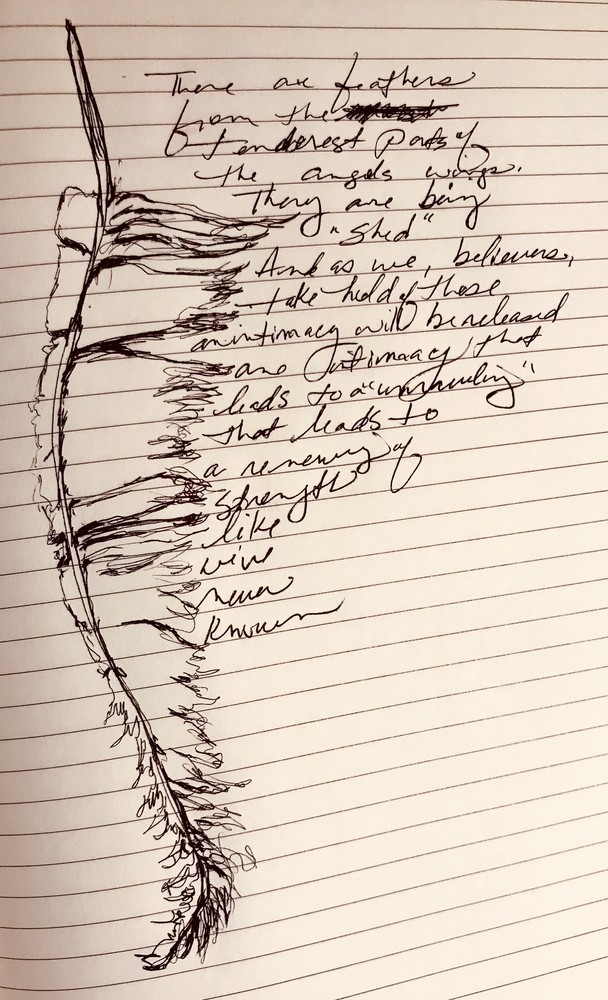 There are feathers
from the
tenderest parts of
the angels wings.
They are being
"shed"
And as we, believers,
take hold of those
an intimacy will be released
an intimacy that
leads to a "unraveling"
that leads to
a renewing of
strength
like
we've
never
known